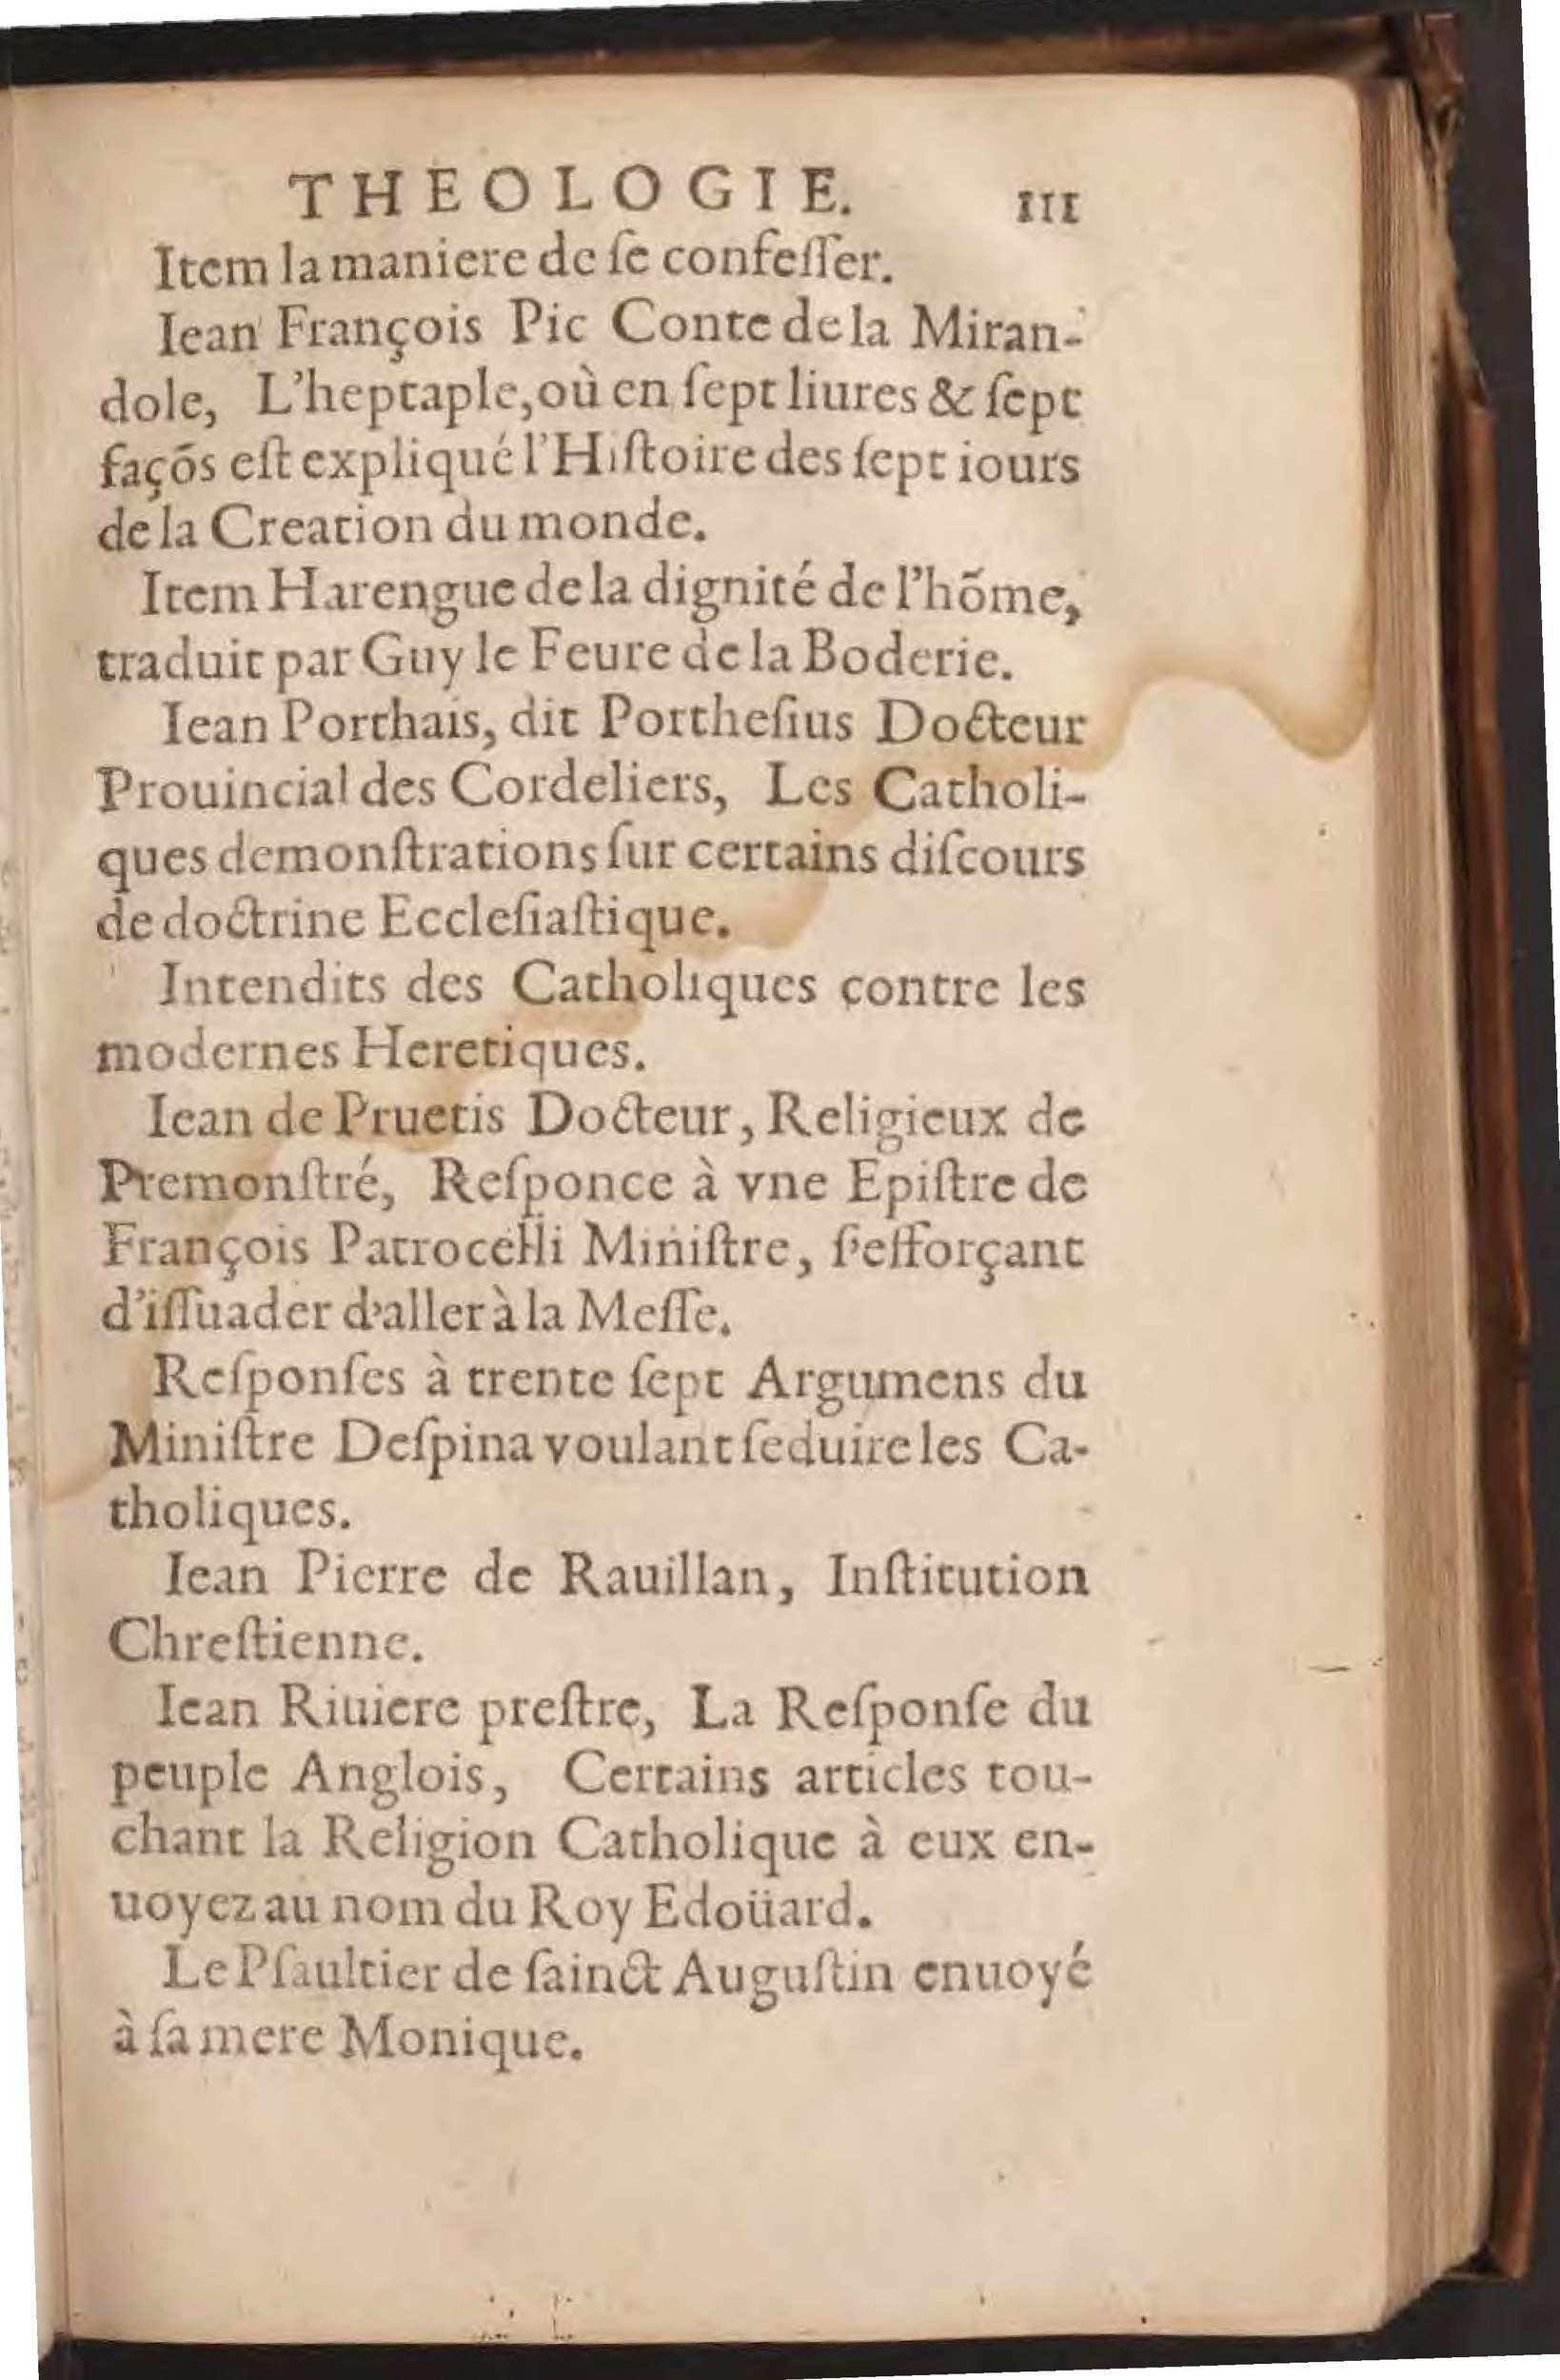 THEOLOGIE. III
Item la maniere de ſe confeſſer.
Iean François Pic Conte de la Miran-
dole, L'heptaple, où en ſept liures & ſept
façõs eſt expliqué l'Hiſtoire des ſept iours
de la Creation du monde.
Item Harengue de la dignité de l'hõme,
traduit par Guy le Feure de la Boderie.
Iean Porthais, dit Portheſius Docteur
Prouincial des Cordeliers, Les Catholi-
ques demonſtrations ſur certains diſcours
de doctrine Eccleſiaſtique.
Intendits des Catholiques contre les
modernes Heretiques.
Iean de Pruetis Docteur, Religieux de
Premonſtré, Reſponce à vne Epiſtre de
François Patrocelli Miniſtre, ſ'efforçant
d'iſſuader d'aller à la Meſſe.
Reſponſes à trente ſept Argumens du
Miniſtre Deſpina voulant ſeduire les Ca-
tholiques.
Iean Pierre de Rauillan, Inſtitution
Chreſtienne.
Iean Riuiere preſtre, La Reſponſe du
peuple Anglois, Certains articles tou-
chant la Religion Catholique à eux en-
uoyez au nom du Roy Edoüard.
Le Pſaultier de ſainct Auguſtin enuoyé
à ſa mere Monique.